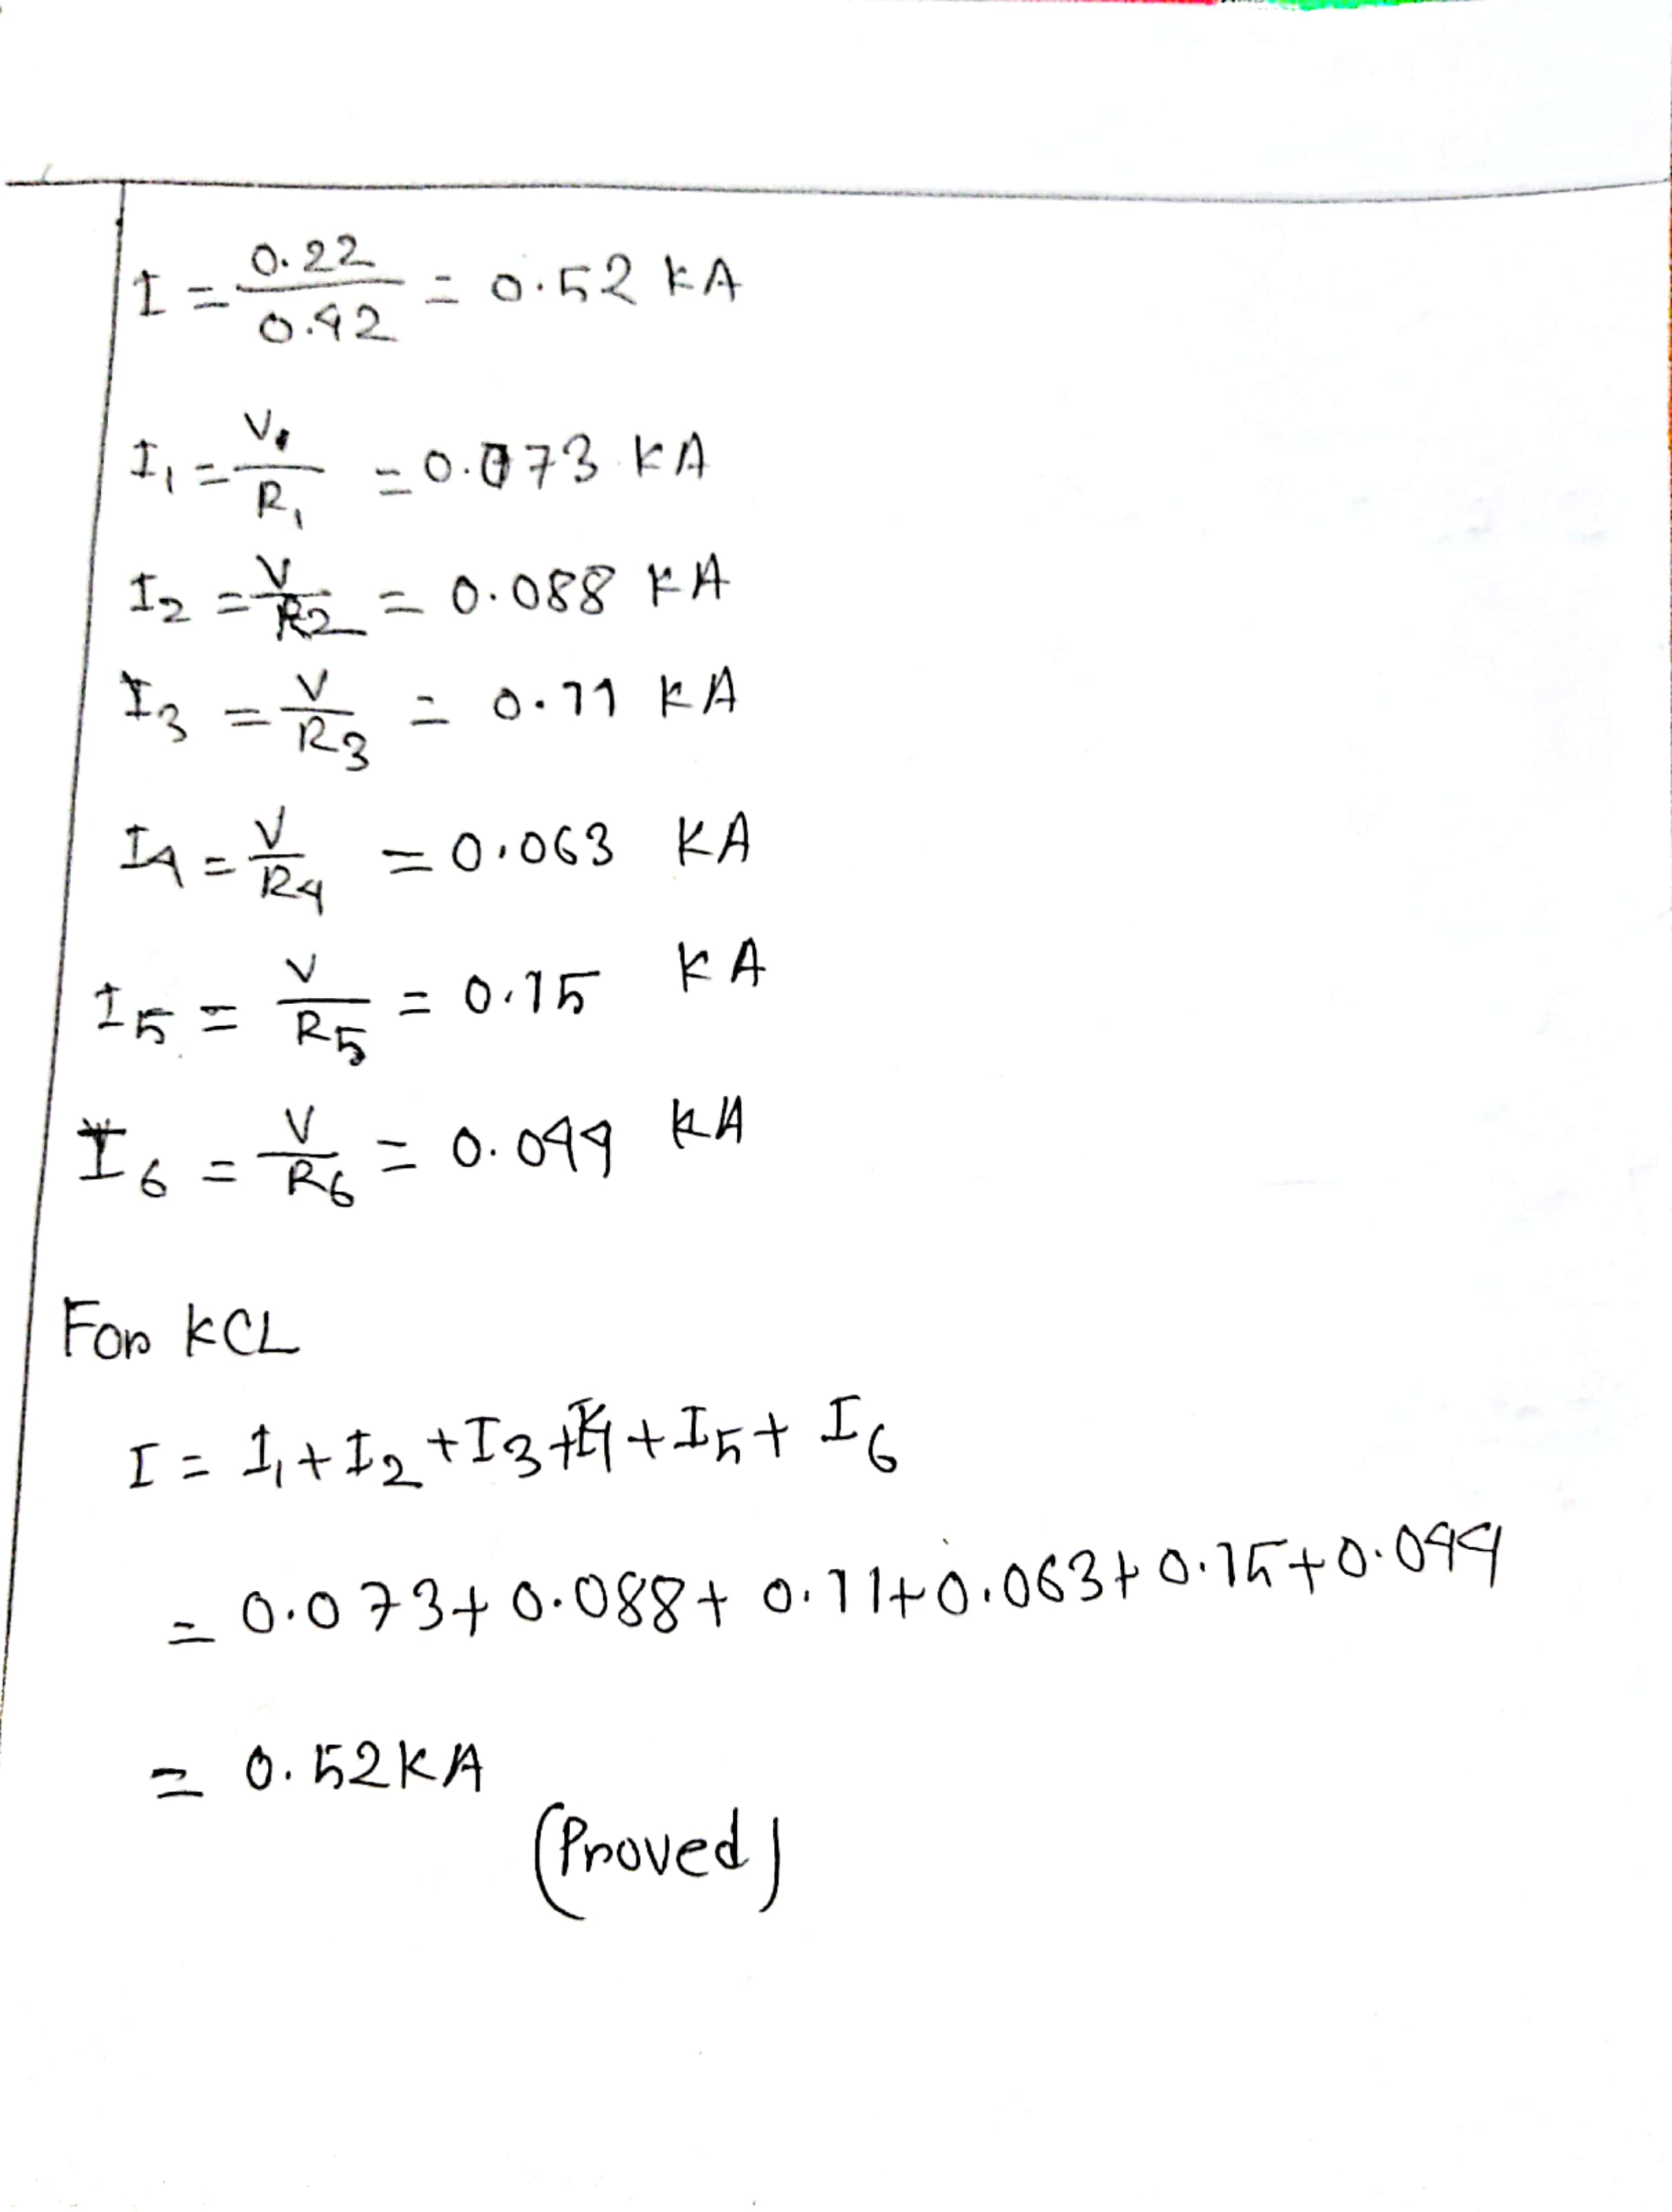 I = 0.22/0.42 = 0.52 KA
I₁ = V/R₁ = 0.073 KA
I₂ = V/R₂ = 0.088 KA
I₃ = V/R₃ = 0.11 KA
I₄ = V/R₄ = 0.063 KA
I₅ = V/R₅ = 0.15 KA
I₆ = V/R₆ = 0.044 KA
For KCL
I = I₁ + I₂ + I₃ + I₄ + I₅ + I₆
= 0.073 + 0.088 + 0.11 + 0.063 + 0.15 + 0.044
= 0.52 KA
(Proved)